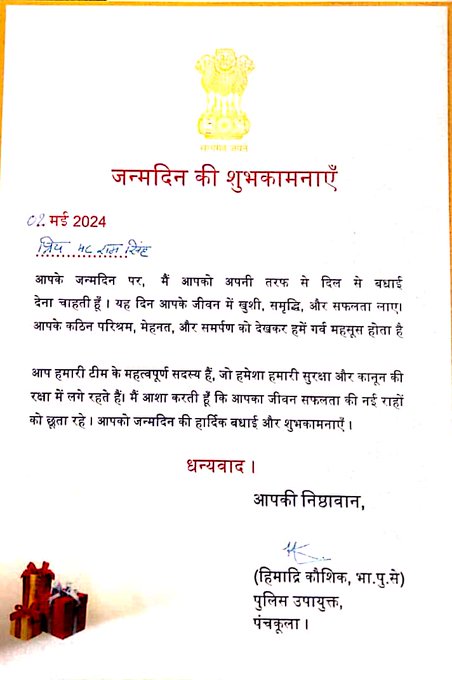 सत्यमेव जयते
जन्मदिन की शुभकामनाएँ
02 मई 2024
प्रिय HC राम सिंह
आपके जन्मदिन पर, मैं आपको अपनी तरफ से दिल से बधाई
देना चाहती हूँ । यह दिन आपके जीवन में खुशी, समृद्धि, और सफलता लाए।
आपके कठिन परिश्रम, मेहनत, और समर्पण को देखकर हमें गर्व महसूस होता है
आप हमारी टीम के महत्वपूर्ण सदस्य हैं, जो हमेशा हमारी सुरक्षा और कानून की
रक्षा में लगे रहते हैं। मैं आशा करती हूँ कि आपका जीवन सफलता की नई राहों
को छूता रहे । आपको जन्मदिन की हार्दिक बधाई और शुभकामनाएँ ।
धन्यवाद ।
आपकी निष्ठावान,
(हिमाद्रि कौशिक, भा.पु.से)
पुलिस उपायुक्त,
पंचकूला ।